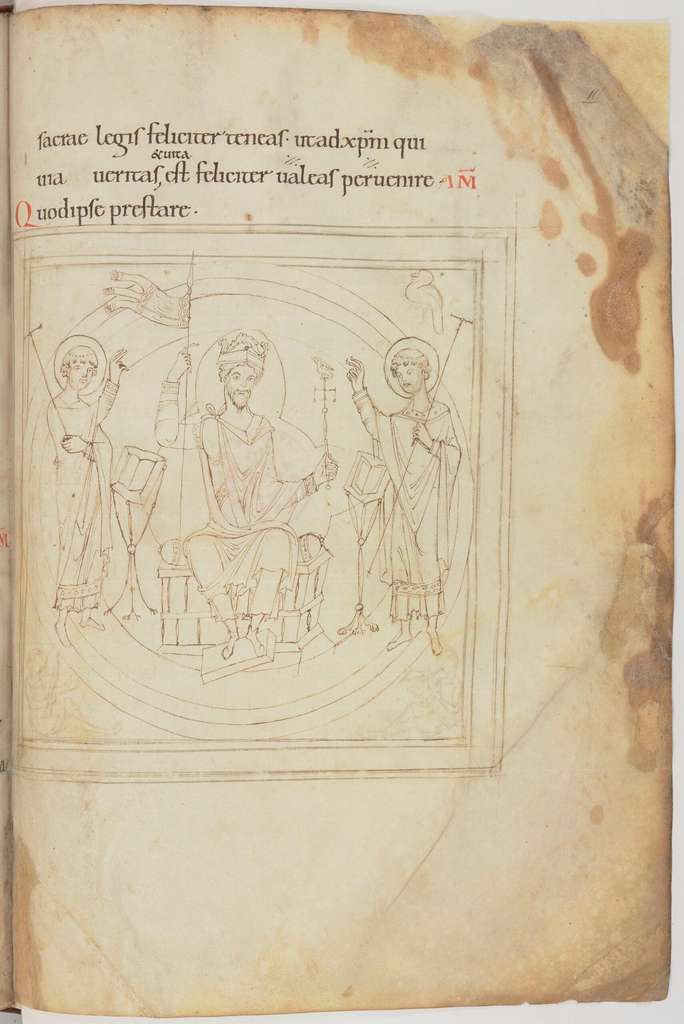 sacrae legis feliciter teneas. ut ad xp̄m qui
&uita
uia ueritas, est feliciter ualeas peruenire AM̄
Quod ipse prestare.